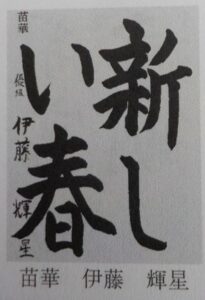 新し
い春
苗華
優級 伊藤輝星
苗華 伊藤 輝星